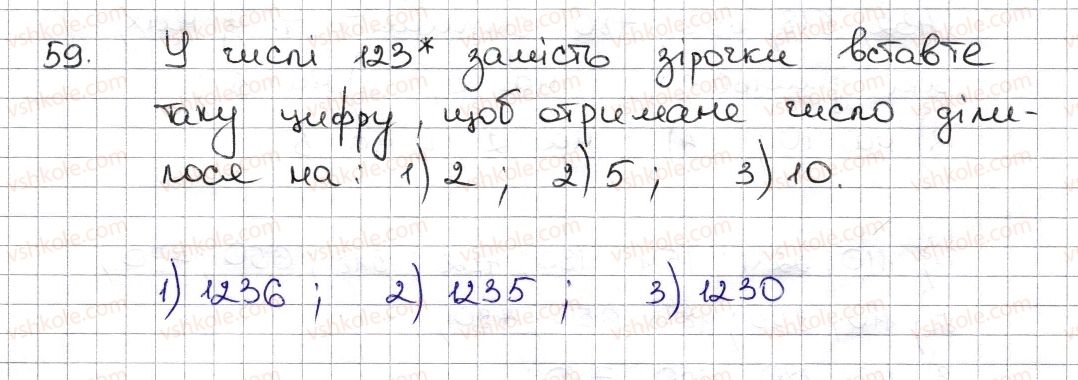 59. У числі 123* замість зірочки вставте
таку цифру, щоб отримане число діли-
лося на: 1) 2 ; 2) 5 ; 3) 10.
1) 1236 ; 2) 1235 ; 3) 1230